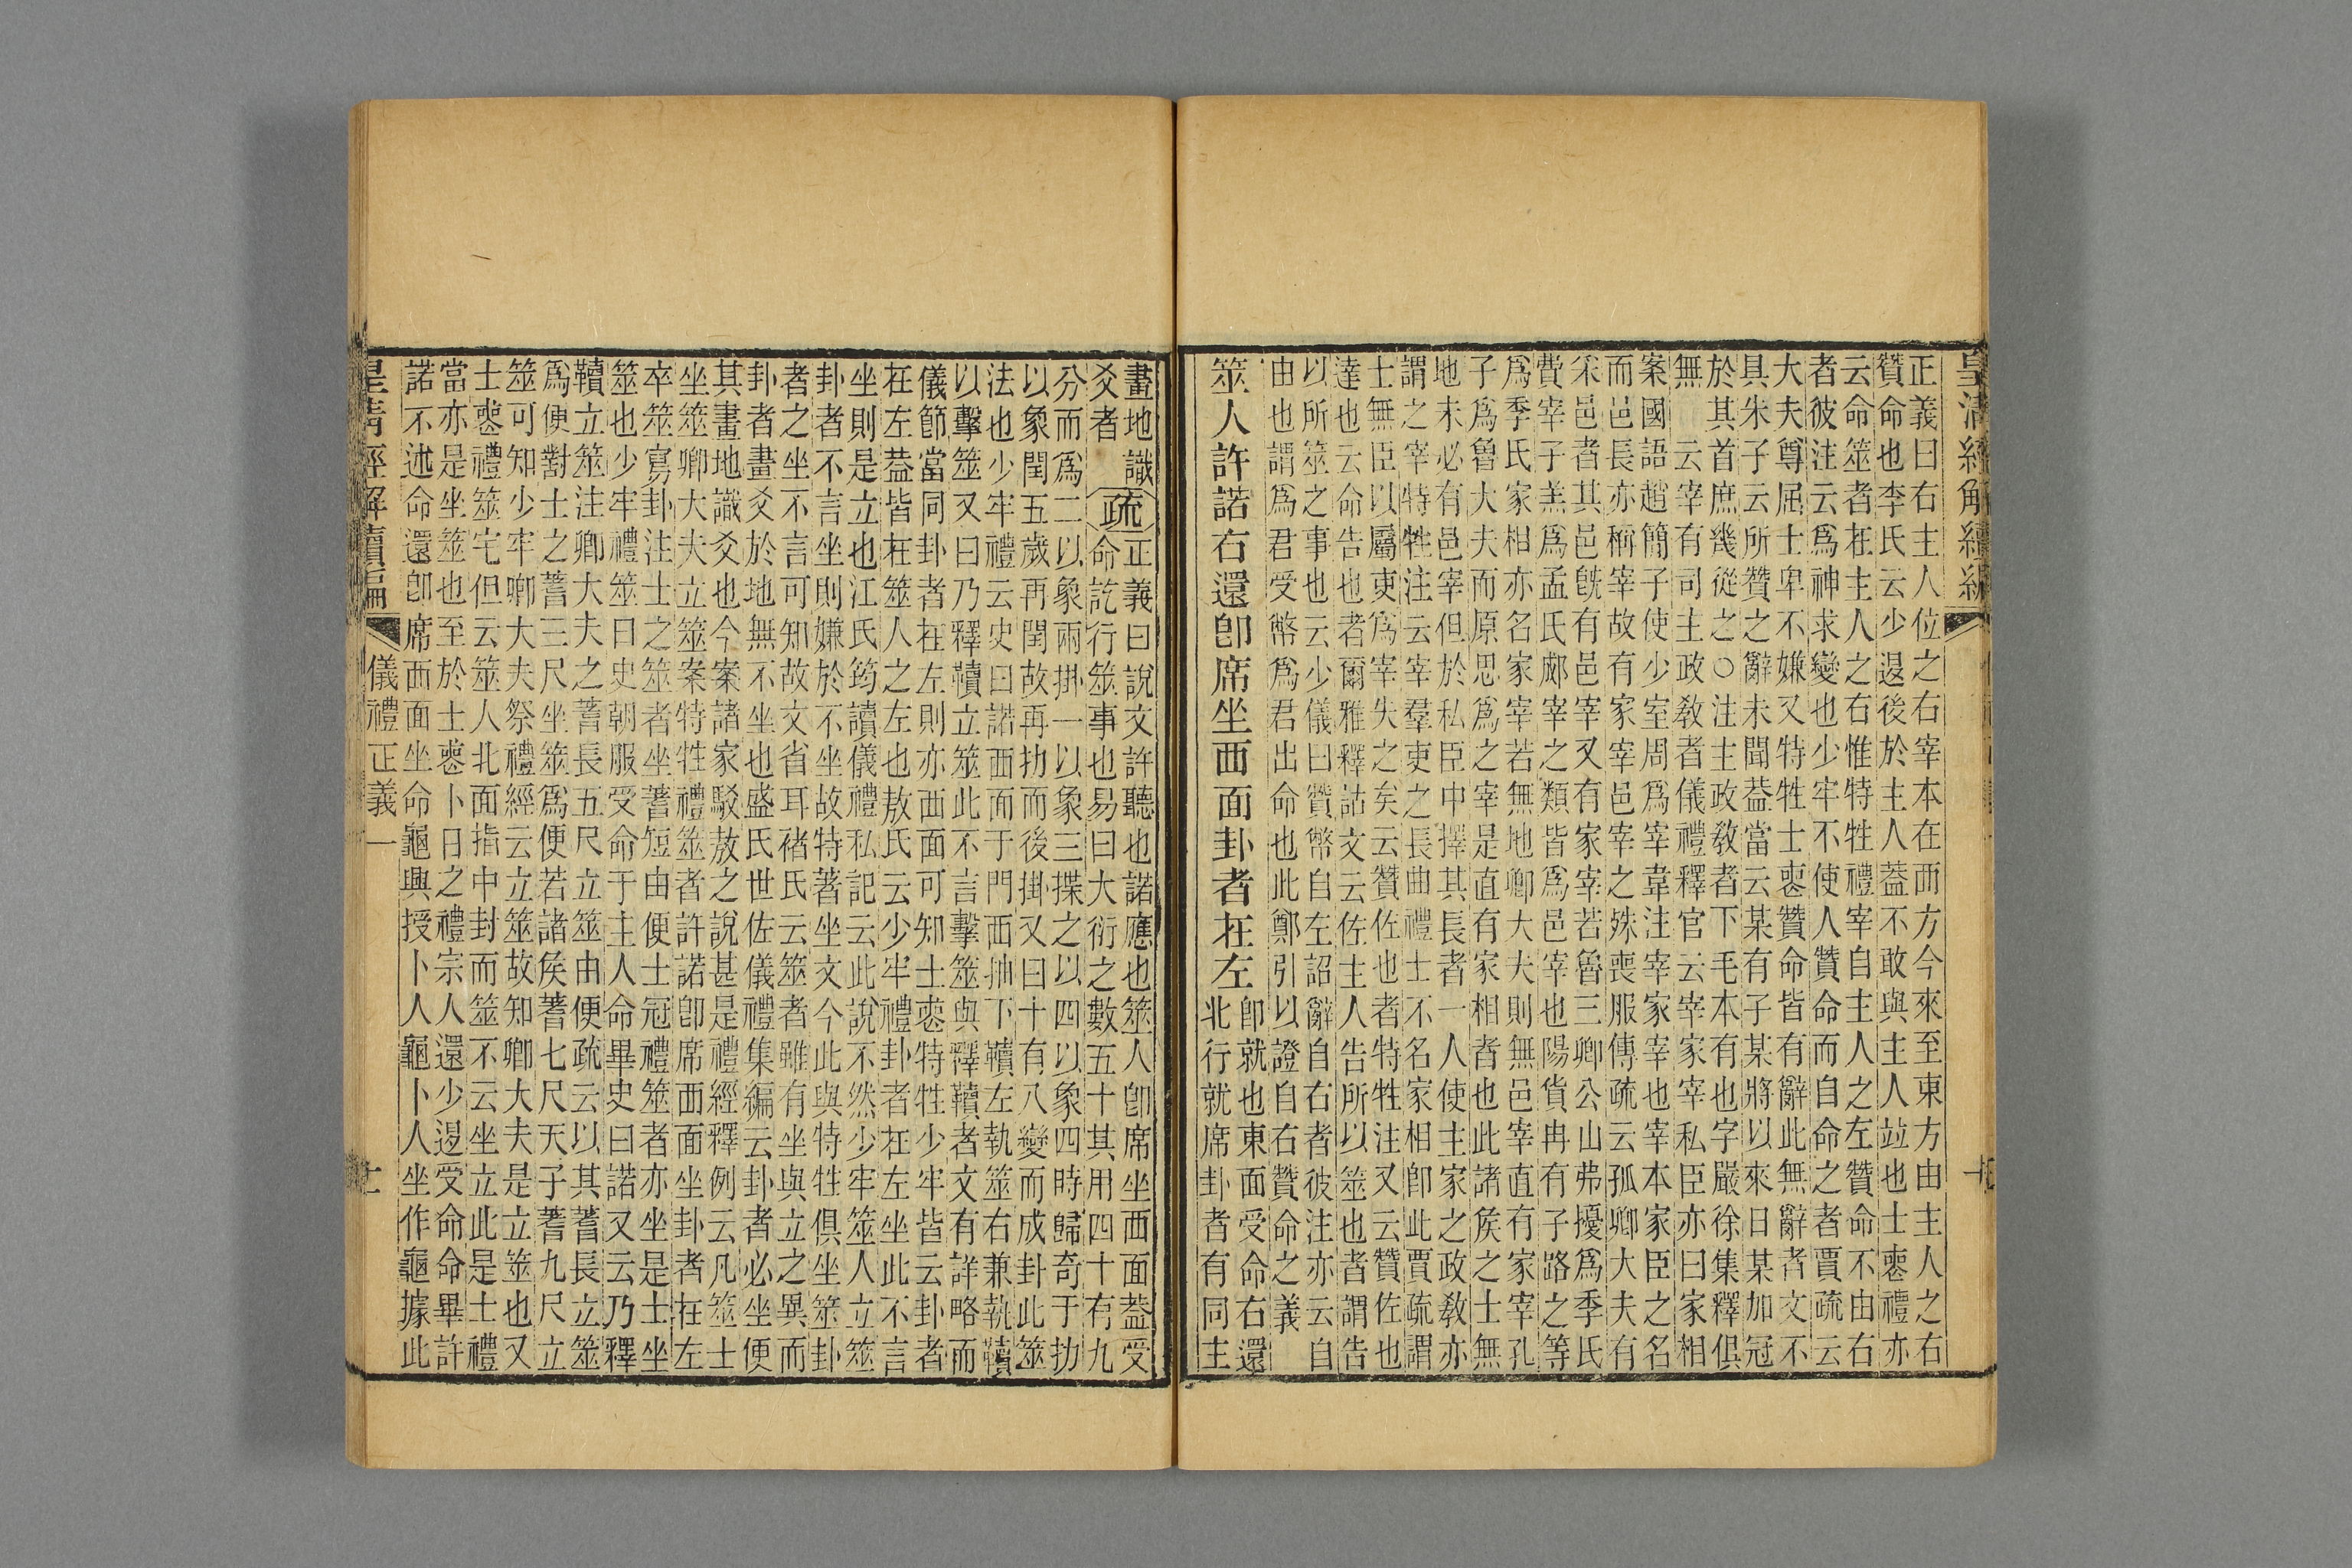 皇清經解續編
正義曰右主人位之右宰本在西方今來至東方由主人之右
贊命也李氏云少退後於主人葢不敢與主人竝也士喪禮亦
云命筮者在主人之右惟特牲禮宰自主人之左贊命不由右
者彼注云爲神求變也少牢不使人贊命而自命之者賈疏云
大夫尊屈士卑不嫌又特牲士喪贊命皆有辭此無辭者文不
具朱子云所贊之辭未聞葢當云某有子某將以來日某加冠
於其首庶幾從之○注主政敎者下毛本有也字嚴徐集釋俱
無 云宰有司主政敎者儀禮釋官云宰家宰私臣亦曰家相
案國語趙簡子使少室周爲宰韋注宰家宰也宰本家臣之名
而邑長亦稱宰故有家宰邑宰之殊喪服傳疏云孤卿大夫有
采邑者其邑旣有邑宰又有家宰若魯三卿公山弗擾爲季氏
費宰子羔爲孟氏郕宰之類皆爲邑宰也陽貨冉有子路之等
爲季氏家相亦名家宰若無地卿大夫則無邑宰直有家宰孔
子爲魯大夫而原思爲之宰是直有家相者也此諸侯之士無
地未必有邑宰但於私臣中擇其長者一人使主家之政敎亦
謂之宰特牲注云宰羣吏之長曲禮士不名家相卽此賈疏謂
士無臣以屬吏爲宰失之矣云贊佐也者特牲注又云贊佐也
達也云命告也者爾雅釋詁文云佐主人告所以筮也者謂告
以所筮之事也云少儀曰贊幣自左詔辭自右者彼注亦云自
由也謂爲君受幣爲君出命也此鄭引以證自右贊命之義
筮人許諾右還卽席坐西面卦者在左
卽就也東面受命右還
北行就席卦者有同主
畫地識
爻者
疏
正義曰說文許聽也諾應也筮人卽席坐西面葢受
命訖行筮事也易曰大衍之數五十其用四十有九
分而爲二以象兩掛一以象三揲之以四以象四時歸奇于扐
以象閏五歲再閏故再扐而後掛又曰十有八變而成卦此筮
法也少牢禮云史曰諾西面于門西抽下韇左執筮右兼執韇
以擊筮又曰乃釋韇立筮此不言擊筮與釋韇者文有詳略而
儀節當同卦者在左則亦西面可知士喪特牲少牢皆云卦者
在左葢皆在筮人之左也敖氏云少牢禮卦者在左坐此不言
坐則是立也江氏筠讀儀禮私記云此說不然少牢筮人立筮
卦者不言坐則嫌於不坐故特著坐文今此與特牲俱坐筮卦
者之坐不言可知故文省耳褚氏云筮者雖有坐與立之異而
卦者畫爻於地無不坐也盛氏世佐儀禮集編云卦者必坐便
其畫地識爻也今案諸家駁敖之說甚是禮經釋例云凡筮士
坐筮卿大夫立筮案特牲禮筮者許諾卽席西面坐卦者在左
卒筮寫卦注士之筮者坐蓍短由便士冠禮筮者亦坐是士坐
筮也少牢禮筮日史朝服受命于主人命畢史曰諾又云乃釋
韇立筮注卿大夫之蓍長五尺立筮由便疏云以其蓍長立筮
爲便對士之蓍三尺坐筮爲便若諸侯蓍七尺天子蓍九尺立
筮可知少牢卿大夫祭禮經云立筮故知卿大夫是立筮也又
士喪禮筮宅但云筮人北面指中封而筮不云坐立此是士禮
當亦是坐筮也至於士喪卜日之禮宗人還少退受命命畢許
諾不述命還卽席西面坐命龜興授卜人龜卜人坐作龜據此
皇清經解續編
儀禮正義一